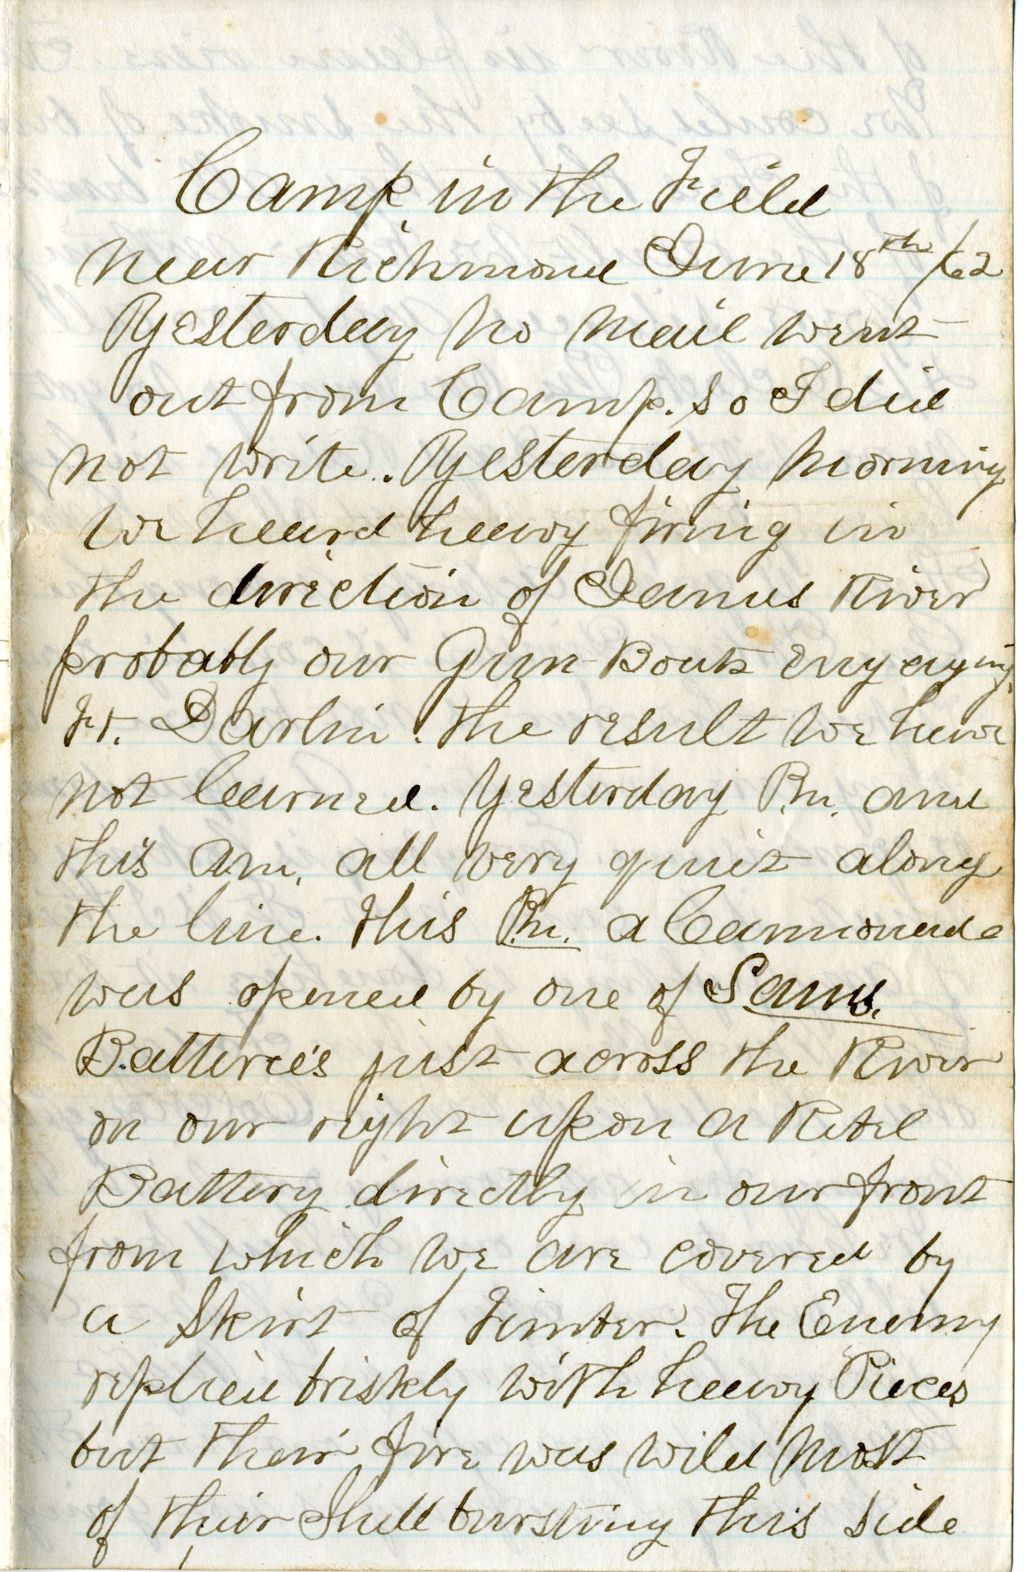 Camp in the Field
near Richmond June 18th /62
Yesterday no mail went
out from Camp. So I did
not write. Yesterday morning
we heard heavy firing in
the direction of James River
probably our Gun Boats engaging
Ft. Darlin. the result we have
not learned. Yesterday Pm. and
this am. all very quiet along
the line. This Pm. a Cannonade
was opened by one of Sams.
Batteries just across the River
on our right upon a Rebel
Battery directly in our front
from which we are covered by
a Skirt of Timber. The Enemy
replied briskly with heavy Pieces
but their fire was wild most
of their Shell bursting this side